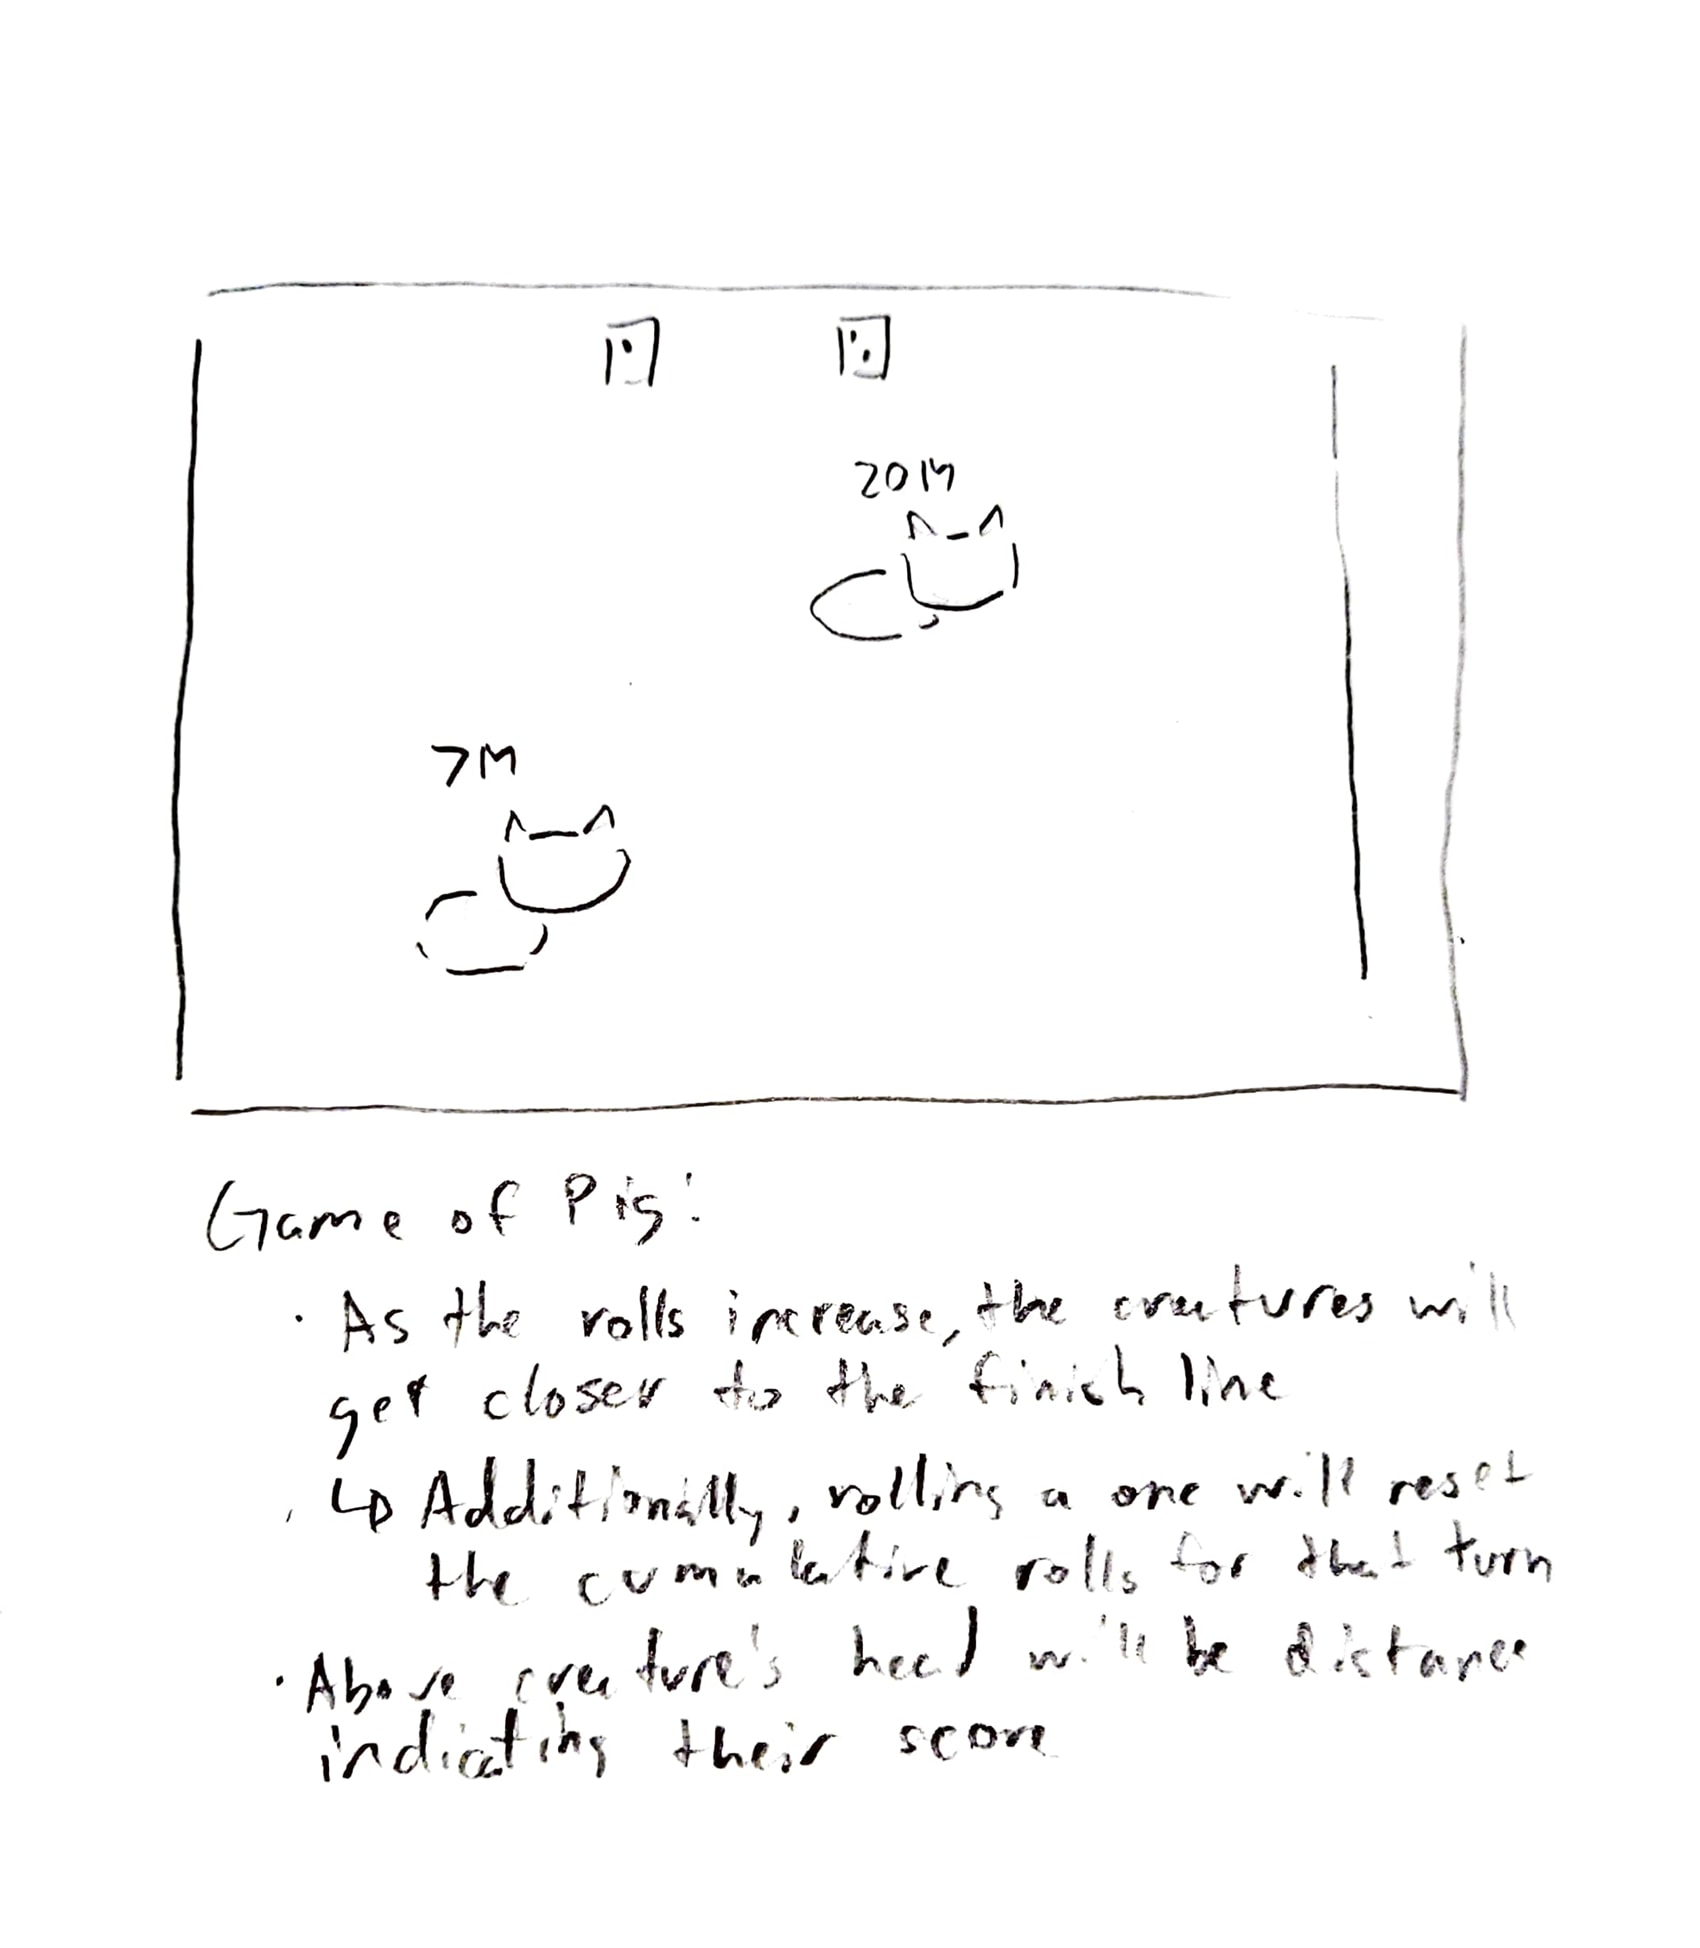 20M
7M
Game of Pig:
· As the rolls increase, the creatures will
get closer to the finish line
↳ Additionally, rolling a one will reset
the cumulative rolls for that turn
· Above creature's head will be distance
indicating their score